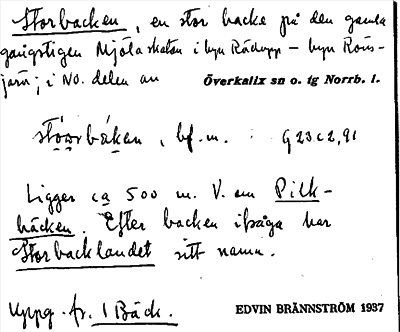 Storbacken, en stor backe på den gamla
gångstigen Mjölaskatan i byn Räktjupp – byn Rous-
järv; i NO. delen av Överkalix sn o. tg Norrb. l.
bf. m. G 23 c 2,91
Ligger ca 500 m. V. om Pilk-
bäcken. Efter backen ifråga har
Storbacklandet sitt namn.
Uppg. fr. 1 Bäck.
EDVIN BRÄNNSTRÖM 1937